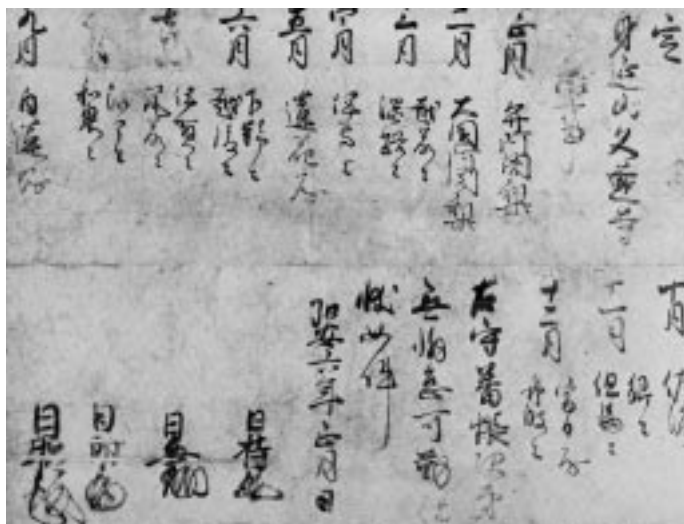 定
身延山久遠寺
番帳事
正月 弁阿闍梨
二月 大国阿闍梨
三月 越前公
淡路公
四月 伊与公
五月 蓮花阿
六月 越後公
下野公
七月 伊賀公
筑前公
八月
和泉公
九月 白蓮阿
十月
十一月 但馬公
卿公
十二月 丹波公
寂日房
右守番帳次第
無懈怠可勤仕
状如件
弘安六年正月 日
日持
日興
日朗
日昭